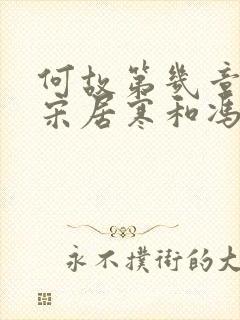 何故第几章
宋居寒和冯
永不扑街的大